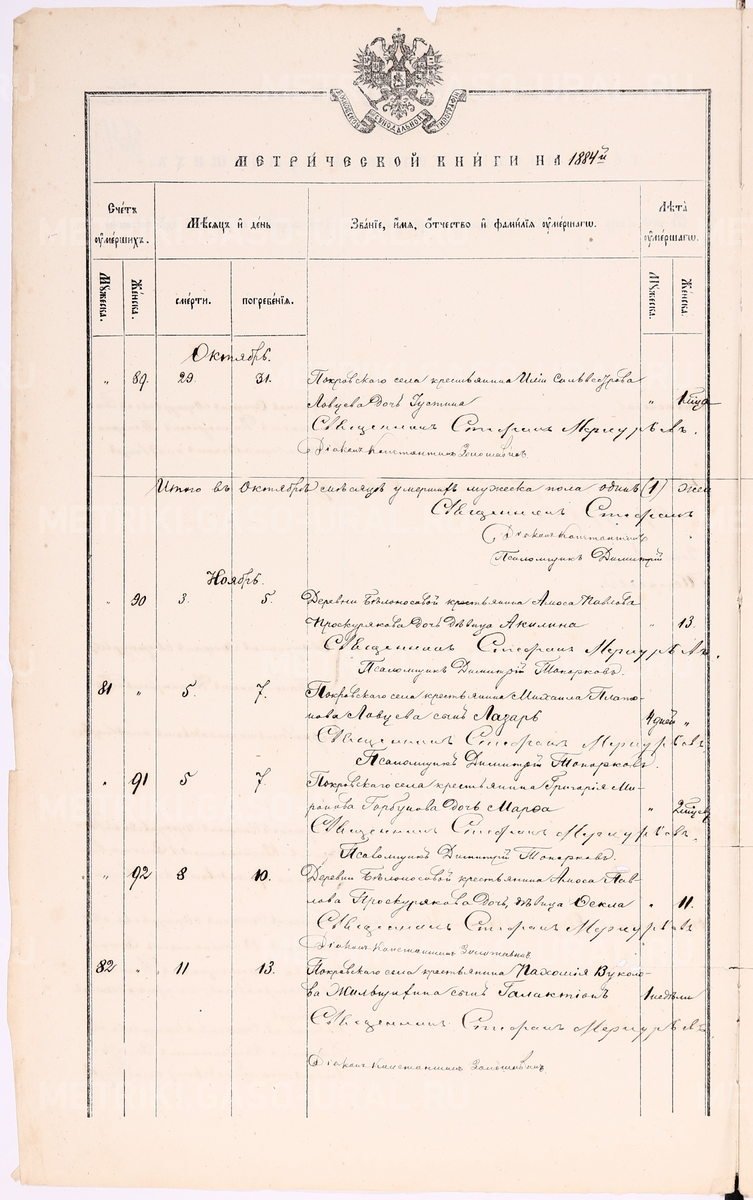 МЕТРИ́ЧЕСКОЙ КНИ́ГИ НА 1884й
Счетъ оумершихъ.
Мѣсяцъ и день
Званіе, имя, отчество и фамилія оумершагѡ.
Лѣта оумершагѡ.
Мужеска.
Женска.
смерти.
погребенія.
Мужеска.
Женска.
Октябрь.
" 89. 29. 31. Покровскаго села крестьянина Иліи
Ловцева дочь Устина "
Священникъ Стефанъ Меркурьевъ.
Діаконъ Константинъ
Итого въ Октябрѣ мѣсяцѣ умершихъ мужеска пола одинъ (1) жен
Священникъ Стефанъ
Діаконъ Константинъ
Псаломщикъ Димитрій
Ноябрь.
" 90 3. 5. Деревни Бѣлоносовой крестьянина Амоса Павлова
Проскурякова дочь дѣвица Акилина " 13.
Священникъ Стефанъ Меркурьевъ.
Псаломщикъ Димитрій Топорковъ.
81 " 5 7. Покровскаго села крестьянина Михаила Плато-
нова Ловцева сынъ Лазарь 4 дней "
Священникъ Стефанъ Меркурьевъ
Псаломщикъ Димитрій Топорковъ.
" 91 5 7 Покровскаго села крестьянина Григорія Ми-
ронова Горбунова дочь Марѳа "
Священникъ Стефанъ Меркурьевъ.
Псаломщикъ Димитрій Топорковъ.
" 92 8 10. Деревни Бѣлоносовой крестьянина Амоса Пав-
лова Проскурякова дочь, дѣвица Ѳекла " 11.
Священникъ Стефанъ Меркурьевъ
Діаконъ Константинъ
82 " 11 13. Покровскаго села крестьянина Пахомія Вуколо-
ва сынъ Галактіонъ 1 недѣли
Священникъ Стефанъ Меркурьевъ
Діаконъ Константинъ